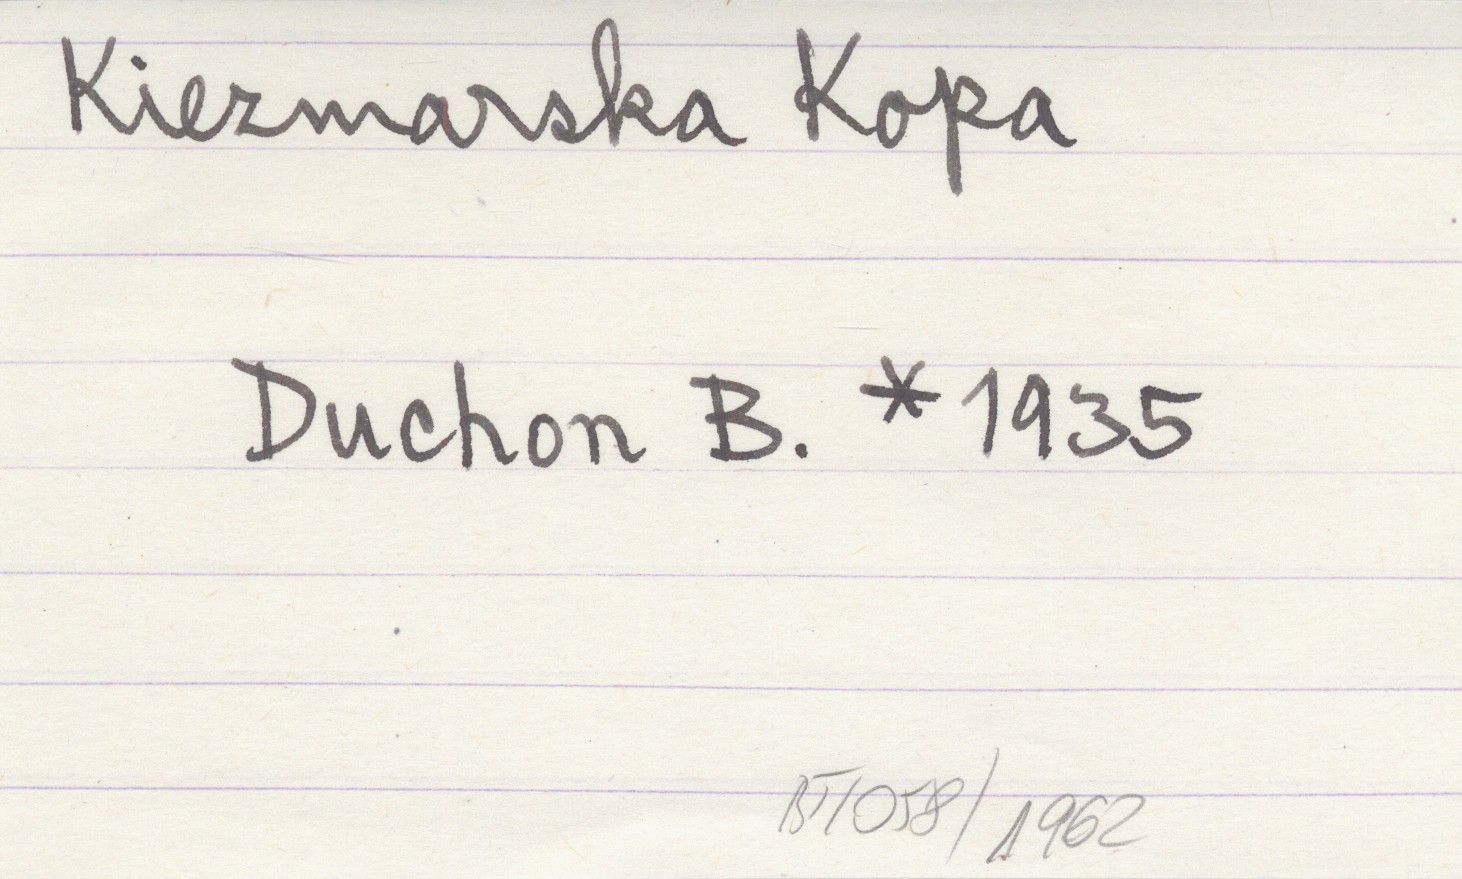 Kiezmarska Kopa
Duchon B. * 1935
BT/058/1962